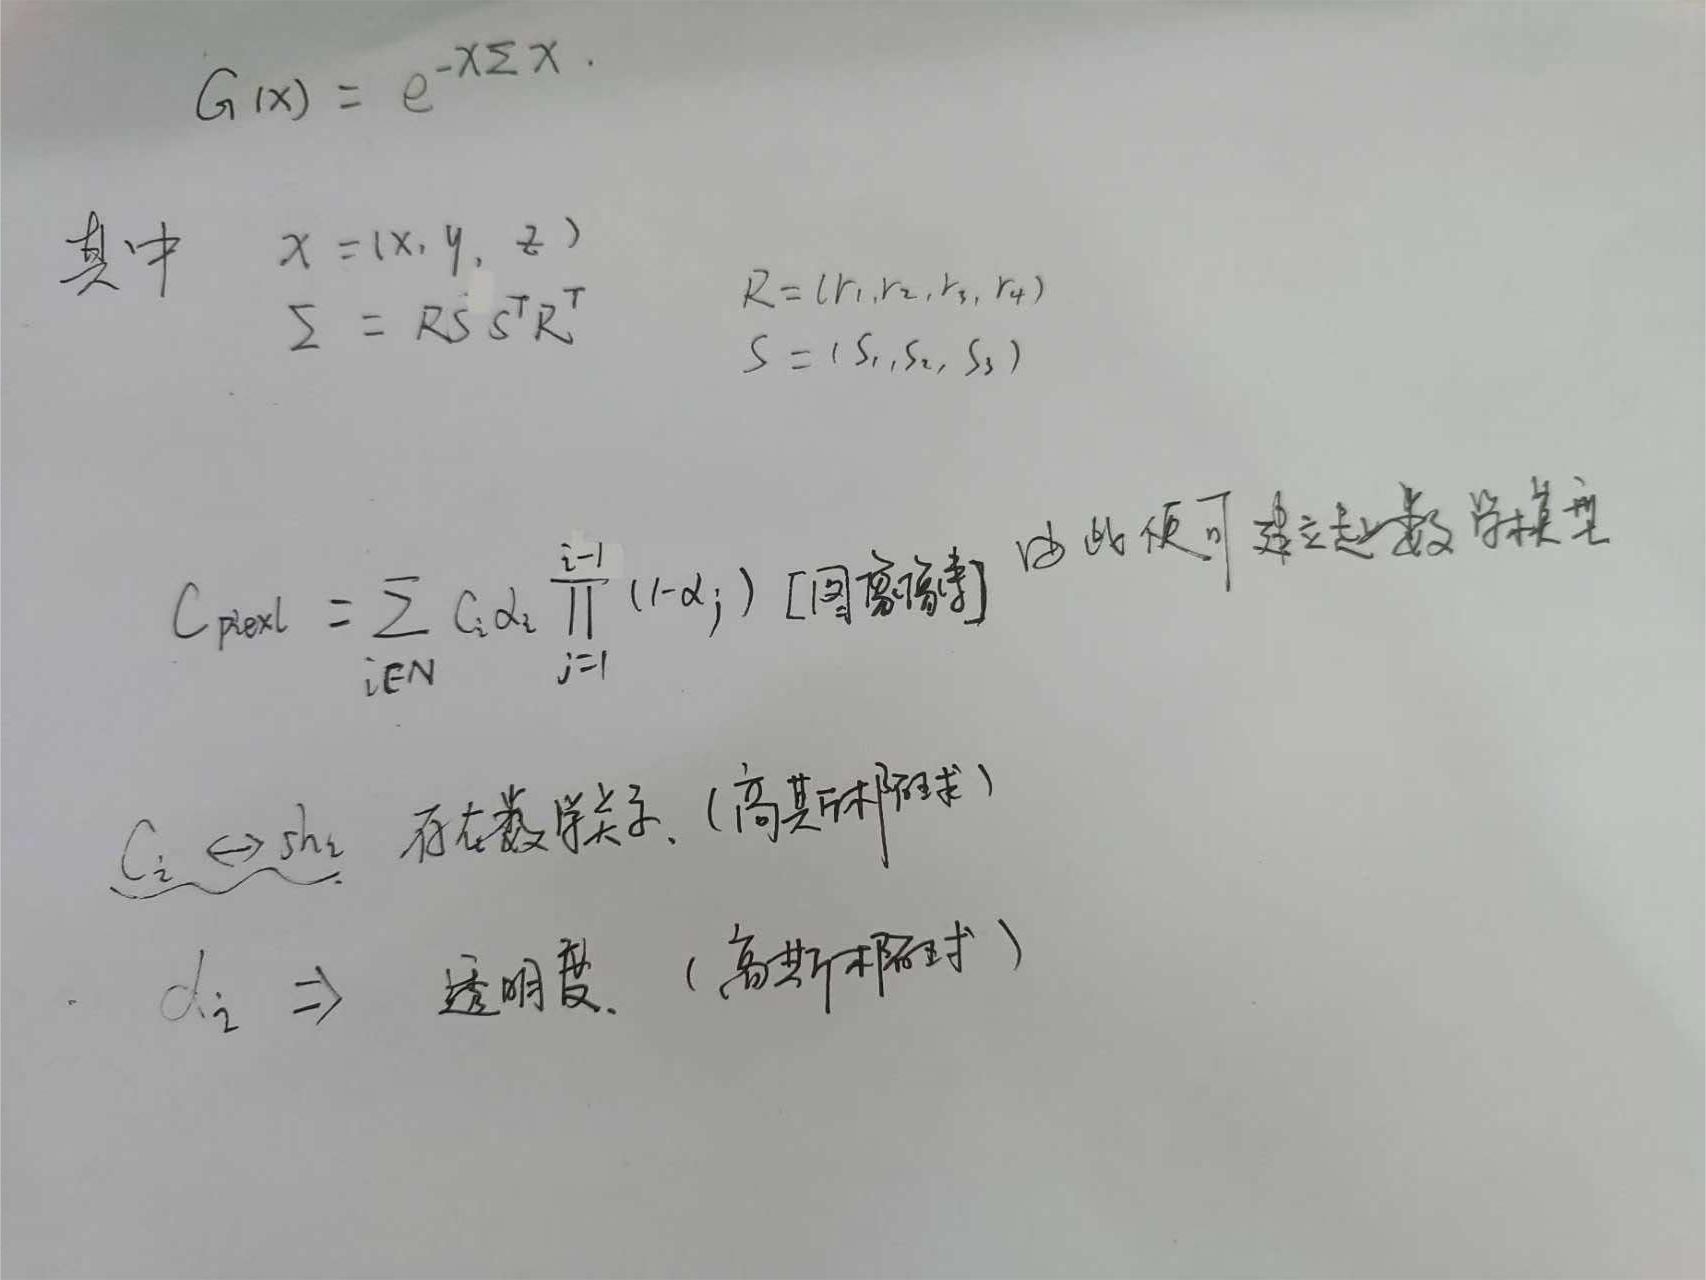 G(x) = e^{-xΣx}.
其中 x = (x, y, z)
Σ = RSS^TR^T
R = (r₁, r₂, r₃, r₄)
S = (S₁, S₂, S₃)
C_{piexl} = Σ_{i∈N} C_i α_i ∏_{j=1}^{i-1} (1-α_j) [图像像素] 由此便可建立起数学模型
C_i ↔ sh_i 存在数学关系. (高斯椭球)
α_i ⇒ 透明度. (高斯椭球)